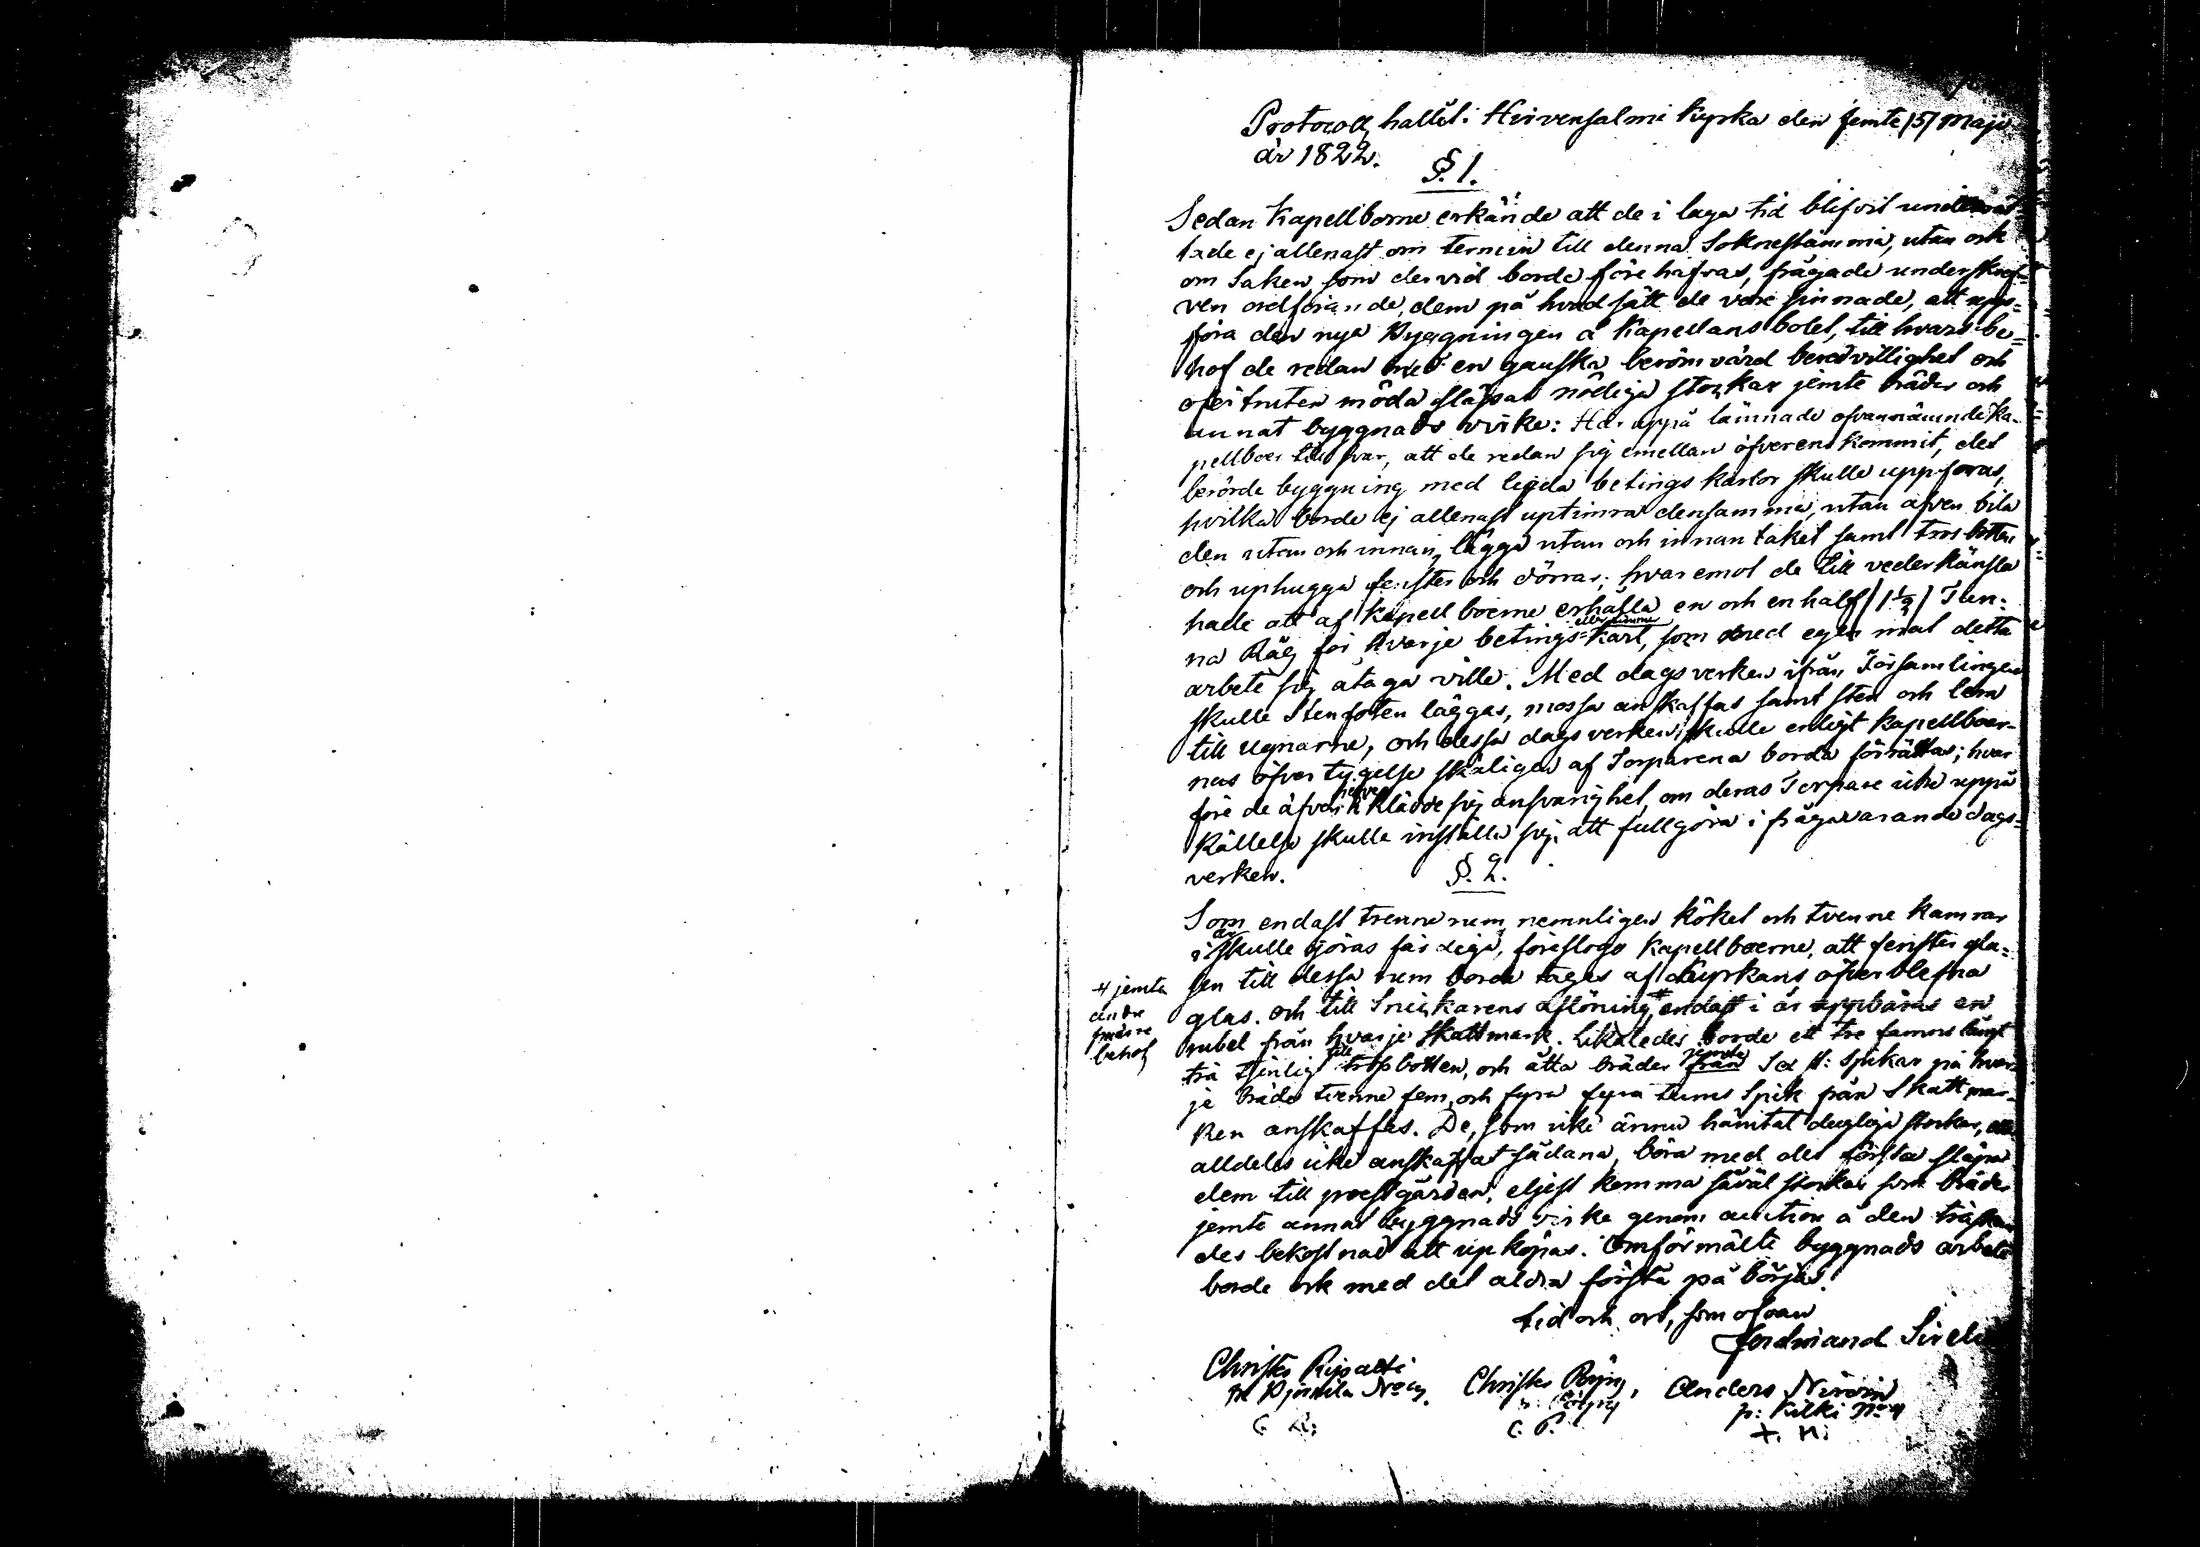 Protocoll, hållit i Hirvensalmi Kyrka den femte /5/ Maji
år 1822.
§. 1.
Sedan Kapellborne erkände att de i laga tid blifvit underrät-
tade ej allenast om termin till denna Soknestämma, utan ock
om Saken som dervid borde förehafvas, frågade underskref-
ven ordförande, dem på hvad sätt de vore sinnade, att upp-
föra den nya Byggningen å Kapellans bolet, till hvars be-
hof de redan med en ganska berömvärd beredvillighet och
oförtruten möda släpat nödiga stockar jemte bräder och
annat byggnads virke: Här uppå lämnade ofvannämnde Ka-
pellboer till svar, att de redan sig emellan öfverenskommit, det
berörde byggning med legda betings karlar skulle uppföras,
hvilka borde ej allenast uptimra densamma, utan äfven bila
den utan och innan, lägga utan och innan taket samt tros botten
och uphugga fenster och dörrar; hvaremot de till vederkänsla
hade att af Kapellboerne erhålla en och en half /1 1/2/ Tun-
na Råg för hvarje betings-Karl, som med egen mat detta
arbete sig åtaga ville. Med dagsverken ifrån Församlingen
skulle Stenfoten läggas, mossa anskaffas samt sten och lera
till ugnarne, och dessa dagsverken skulle enligt kapellboer-
nas öfvertygelse skäligen af Torparena borda förrättas; hvar
före de äfven klädde sig ansvarighet, om deras Torpare icke uppå
kallelse skulle inställa sig, att fullgöra i frågavarande dags-
verken.
§. 2.
Som endast trenne rum, nemnligen köket och tvenne kamrar
i år skulle göras färdiga, föreslogo Kapellboerne, att fenster gla-
sen till dessa rum borde tagas af Kyrkans öfverblefna
glas. och till Snickarens aflöning # endast i år uppbäras en
# jemte
andre
smärre
behof
rubel från hvarje Skattmark. Likaledes borde ett tre famns långt
trä tjenligt till trossbotten, och åtta bräder jemte Sex st: spikar på hvar-
je bräde tvenne fem, och fyra fyra tums Spik från Skattmar-
ken anskaffas. De, som icke ännu hämtat dugliga stockar, eller
alldeles icke anskaffat sådana, böra med det första släpa
dem till prestgården, eljest komma såväl stockar som bräder
jemte annat byggnads virke genom auction å den tredskan-
des bekostnad att upköpas. Omförmälte byggnads arbete
borde ock med det aldra första på börjas.
tid och ort, som ofvan
Ferdinand
Christer
Christer
Anders
p: Kilki No 4